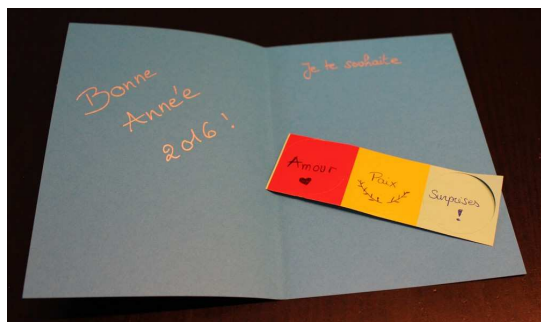 Bonne
Année
2016 !
Je te souhaite
Amour
Paix
Surprises
!